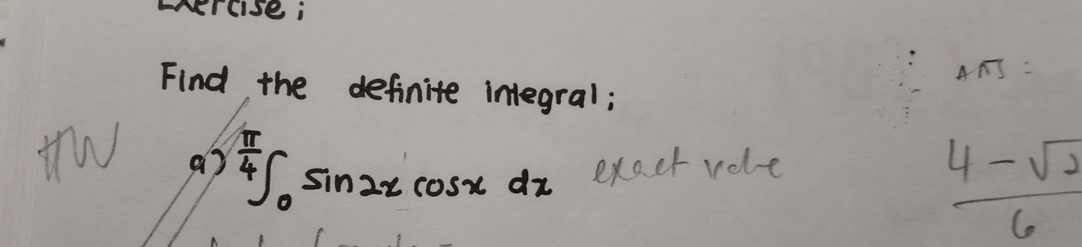 Exercise;
Find the definite integral;
ANS:
HW
a) π/4∫0 sin2x cosx dx exact value
4-√2
6